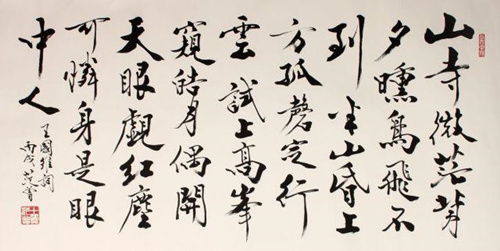 山寺微茫背
夕曛鳥飛不
到半山昏上
方孤磬定行
雲試上高峯
窺皓月偶開
天眼覷紅塵
可憐身是眼
中人
王國維詞
丙戌書